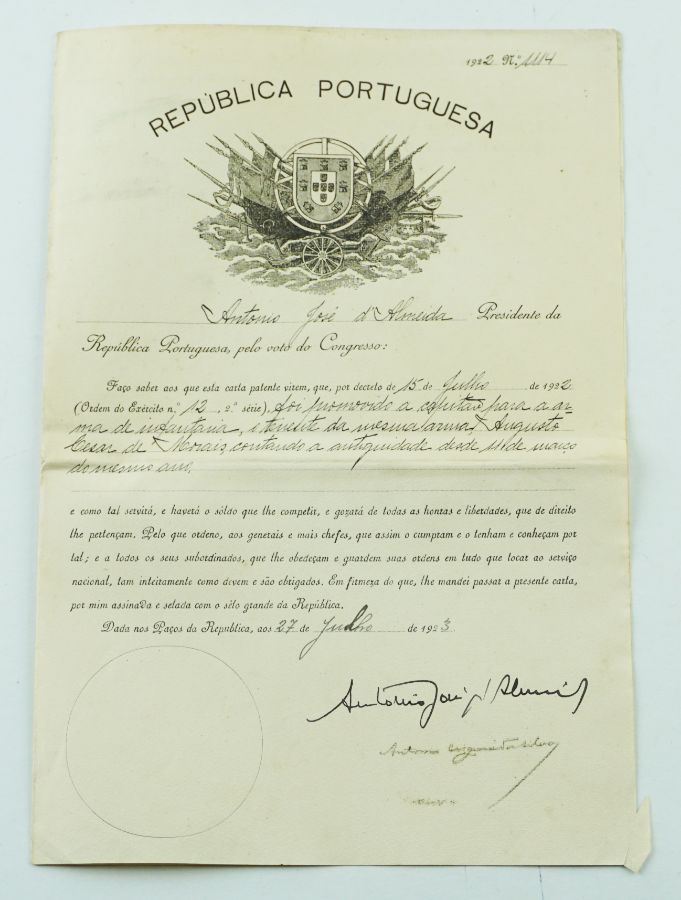 1922 N.º 1114
REPÚBLICA PORTUGUESA
Antonio José d'Almeida Presidente da
República Portuguesa, pelo voto do Congresso:
Faço saber aos que esta carta patente virem, que, por decreto de 15 de Julho de 1922
(Ordem do Exército n.º 12, 2.ª série), foi promovido a capitão para a ar
ma de infantaria, o tenente da mesma arma, Augusto
Cesar de Morais, contando a antiguidade desde 11 de março
do mesmo ano.
e como tal servirá, e haverá o sôldo que lhe competir, e gozará de todas as honras e liberdades, que de direito
lhe pertençam. Pelo que ordeno, aos generais e mais chefes, que assim o cumpram e o tenham e conheçam por
tal; e a todos os seus subordinados, que lhe obedeçam e guardem suas ordens em tudo que tocar ao serviço
nacional, tam inteiramente como devem e são obrigados. Em firmeza do que, lhe mandei passar a presente carta,
por mim assinada e selada com o sêlo grande da República.
Dada nos Paços da República, aos 27 de Julho de 1923.
António José d'Almeida
Antonio da Silva